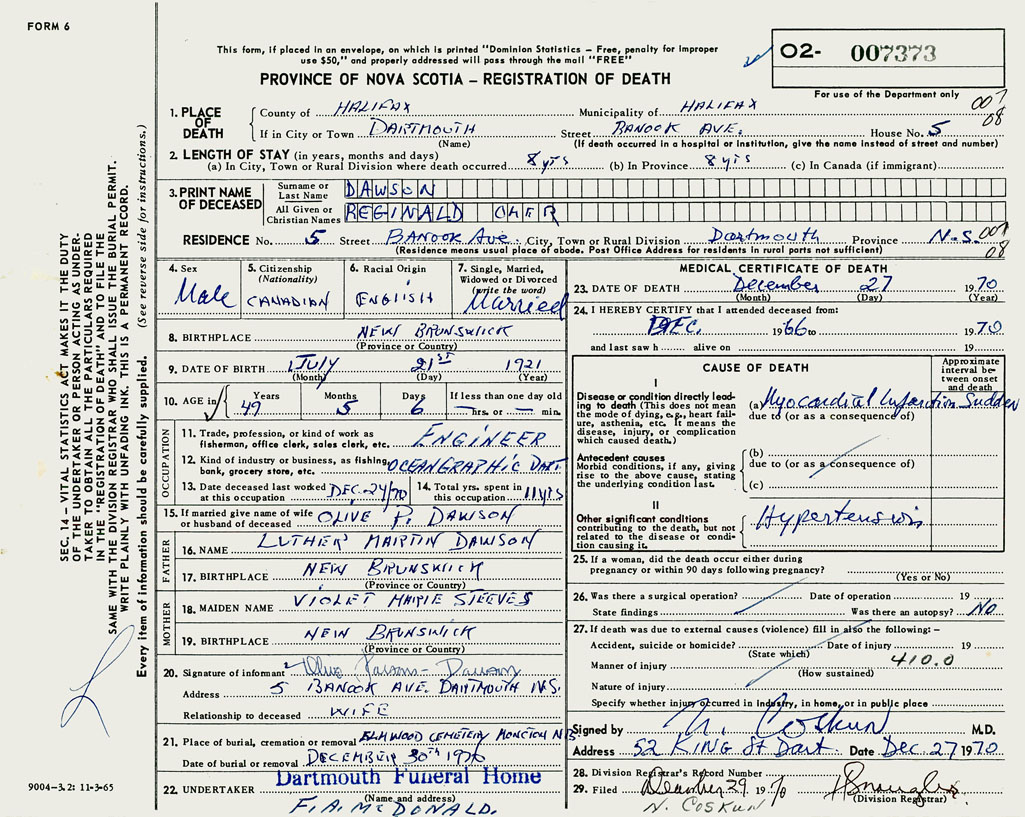 FORM 6
This form, if placed in an envelope, on which is printed "Dominion Statistics – Free, penalty for improper
use $50," and properly addressed will pass through the mail "FREE"
PROVINCE OF NOVA SCOTIA – REGISTRATION OF DEATH
02- 007373
For use of the Department only
007
08
1. PLACE OF DEATH
County of HALIFAX Municipality of HALIFAX
If in City or Town DARTMOUTH Street BANOOK AVE. House No. 5
(Name) (If death occurred in a hospital or institution, give the name instead of street and number)
2. LENGTH OF STAY (in years, months and days)
(a) In City, Town or Rural Division where death occurred 8 yrs (b) In Province 8 yrs (c) In Canada (if immigrant)
3. PRINT NAME OF DECEASED
Surname or Last Name DAWSON
All Given or Christian Names REGINALD
RESIDENCE No. 5 Street BANOOK AVE City, Town or Rural Division Dartmouth Province N.S. 007
08
(Residence means usual place of abode. Post Office Address for residents in rural parts not sufficient)
4. Sex Male
5. Citizenship (Nationality) CANADIAN
6. Racial Origin ENGLISH
7. Single, Married, Widowed or Divorced (write the word) Married
8. BIRTHPLACE NEW BRUNSWICK
(Province or Country)
9. DATE OF BIRTH July 21st 1921
(Month) (Day) (Year)
10. AGE in Years 49 Months 5 Days 6 If less than one day old
hrs. or min.
OCCUPATION
11. Trade, profession, or kind of work as
fisherman, office clerk, sales clerk, etc. ENGINEER
12. Kind of industry or business, as fishing,
bank, grocery store, etc. OCEANGRAPHIC DART
13. Date deceased last worked
at this occupation DEC. 24/70
14. Total yrs. spent in
this occupation 11 YRS
15. If married give name of wife
or husband of deceased OLIVE P. DAWSON
FATHER
16. NAME LUTHER MARTIN DAWSON
17. BIRTHPLACE NEW BRUNSWICK
(Province or Country)
MOTHER
18. MAIDEN NAME VIOLET MARIE STEEVES
19. BIRTHPLACE NEW BRUNSWICK
(Province or Country)
20. Signature of informant Olive Parsons-Dawson
Address 5 BANOOK AVE. DARTMOUTH N.S.
Relationship to deceased WIFE
21. Place of burial, cremation or removal ELMWOOD CEMETERY MONCTON NB
Date of burial or removal DECEMBER 30th 1970
22. UNDERTAKER Dartmouth Funeral Home
(Name and address)
F. A. McDONALD.
MEDICAL CERTIFICATE OF DEATH
23. DATE OF DEATH December 27 1970
(Month) (Day) (Year)
24. I HEREBY CERTIFY that I attended deceased from:
DEC. 1966 to 1970
and last saw h alive on 19
CAUSE OF DEATH
Approximate interval between onset and death
I
Disease or condition directly leading to death (This does not mean the mode of dying, e.g., heart failure, asthenia, etc. It means the disease, injury, or complication which caused death.)
(a) Myocardial Infarction Sudden
due to (or as a consequence of)
Antecedent causes
Morbid conditions, if any, giving rise to the above cause, stating the underlying condition last.
(b)
due to (or as a consequence of)
(c)
II
Other significant conditions contributing to the death, but not related to the disease or condition causing it.
Hypertension
25. If a woman, did the death occur either during
pregnancy or within 90 days following pregnancy?
(Yes or No)
26. Was there a surgical operation? Date of operation 19
State findings Was there an autopsy? No
27. If death was due to external causes (violence) fill in also the following: –
Accident, suicide or homicide? Date of injury 19
(State which)
Manner of injury 410.0
(How sustained)
Nature of injury
Specify whether injury occurred in Industry, in home, or in public place
Signed by N. Coskun M.D.
Address 52 KING St Dart. Date Dec 27 1970
28. Division Registrar's Record Number
29. Filed December 29 1970
(Division Registrar)
N. COSKUN
SEC. 14 – VITAL STATISTICS ACT MAKES IT THE DUTY
OF THE UNDERTAKER OR PERSON ACTING AS UNDER-
TAKER TO OBTAIN ALL THE PARTICULARS REQUIRED
IN THE "REGISTRATION OF DEATH" AND TO FILE THE
SAME WITH THE DIVISION REGISTRAR WHO SHALL ISSUE THE BURIAL PERMIT.
WRITE PLAINLY WITH UNFADING INK. THIS IS A PERMANENT RECORD.
Every item of information should be carefully supplied. (See reverse side for instructions.)
9004-3.2: 11-3-65